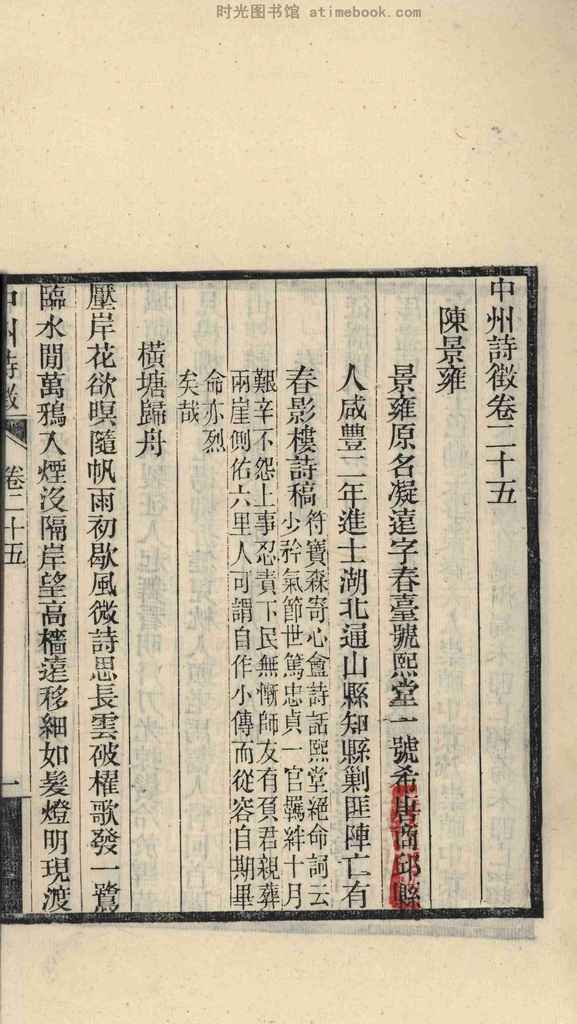 时光图书馆 atimebook.com
中州詩徵卷二十五
陳景雍
景雍原名凝遠字春臺號熙堂一號希唐商邱縣
人咸豐二年進士湖北通山縣知縣剿匪陣亡有
春影樓詩稿
符寶森寄心盦詩話熙堂絕命詞云
少矜氣節世篤忠貞一官羈絆十月
艱辛不怨上事忍責下民無慚師友有負君親葬
兩崖側佑六里人可謂自作小傳而從容自期畢
命亦烈
矣哉
橫塘歸舟
壓岸花欲暝隨帆雨初歇風微詩思長雲破櫂歌發一鷺
臨水閒萬鴉入煙沒隔岸望高檣遠移細如髮燈明現渡
中州詩徵
卷二十五
一